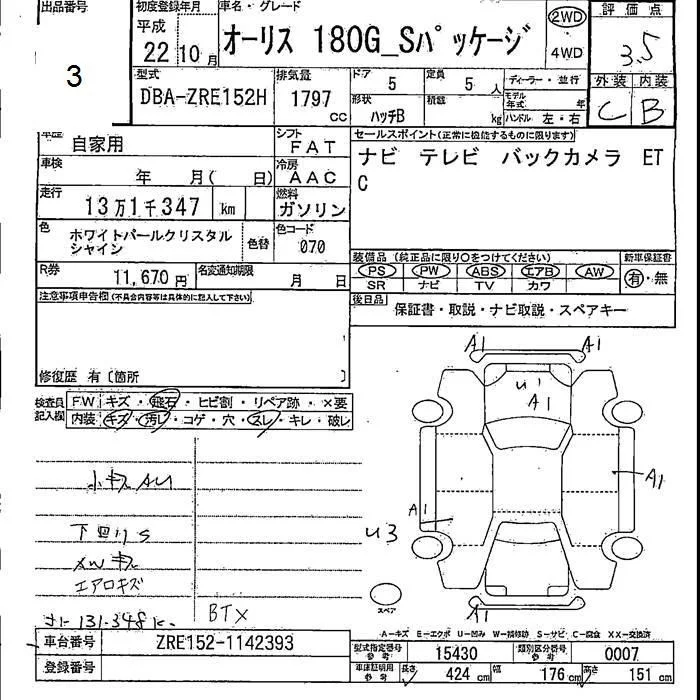 出品番号 初度登録年月 車名・グレード 2WD 評価点
平成
22 10月 オーリス 180G_Sパッケージ 4WD 3.5
3
型式 排気量 ドア 定員 ディーラー・並行 外装 内装
DBA-ZRE152H 1797 cc 5 5 人 C B
形状 積載 モデル年式 年
ハッチB kg ハンドル 左・右
車歴 自家用 シフト FAT セールスポイント(正常に機能するものに限ります)
車検 年 月( 日) 冷房 AAC ナビ テレビ バックカメラ ET
C
走行 13万1千347 km 燃料 ガソリン
色 ホワイトパールクリスタル 色替 色コード
シャイン 070
装備品(純正品に限り○をつけてください) 新車保証書
R券 11,670円 名変通知期限 月 日 PS PW ABS エアB AW 有・無
SR ナビ TV カワ
注意事項申告欄(不具合内容等は具体的に記入して下さい) 後日品 保証書・取説・ナビ取説・スペアキー
修復歴 有〔箇所 〕
検査員 FW キズ・飛石・ヒビ割・リペア跡・×要
記入欄 内装 キズ・汚レ・コゲ・穴・スレ・キレ・破レ
A1 A1
U1
A1
小キズAU
A1
A1
下回りS U3
XWキズ
エアロキズ
BTX
スペア
A1
A-キズ E-エクボ U-凹み W-補修跡 S-サビ C-腐食 XX-交換済
車台番号 ZRE152-1142393 型式指定番号 参考 15430 類別区分番号 参考 0007
登録番号 車庫証明用 参考 長さ 424 cm 幅 176 cm 高さ 151 cm